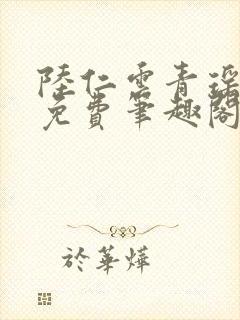 陸仁雲青瑶
免費筆趣閣
於華燁